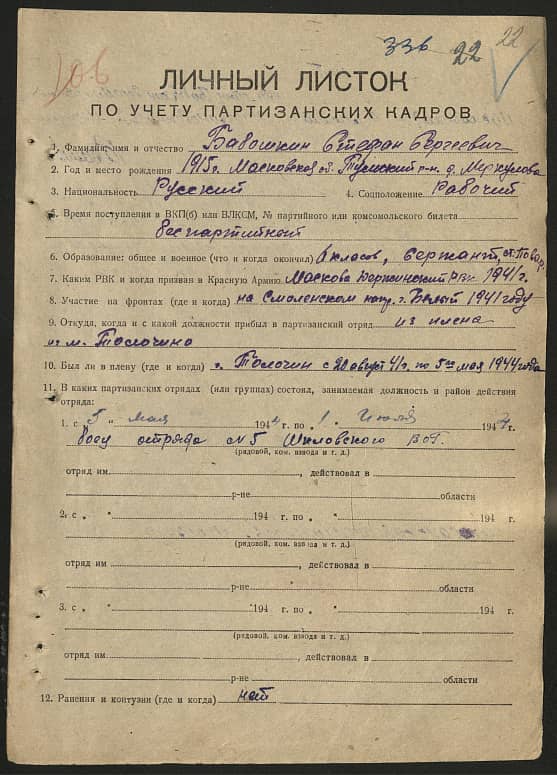 336 22 22
106
ЛИЧНЫЙ ЛИСТОК
ПО УЧЕТУ ПАРТИЗАНСКИХ КАДРОВ
1. Фамилия имя и отчество Бабошкин Стефан Сергеевич
2. Год и место рождения 1915 г. Московской об. Тумский р-н. д. Меркулова
3. Национальность Русский 4. Соцположение Рабочий
5. Время поступления в ВКП(б) или ВЛКСМ, № партийного или комсомольского билета
беспартийный
6. Образование: общее и военное (что и когда окончил) 6 класов, сержант, ст. Повар
7. Каким РВК и когда призван в Красную Армию Москова Дзержинский Рвк 1941 г.
8. Участие на фронтах (где и когда) на Смоленском напр. г. Белый 1941 году
9. Откуда, когда и с какой должности прибыл в партизанский отряд из плена
из м. Толочино
10. Был ли в плену (где и когда) г. Толочин с 20 август 41 г. по 5 мая 1944 года
11. В каких партизанских отрядах (или группах) состоял, занимаемая должность и район действия
отряда:
1. с 5 " мая 1944 г. по " 1 " Июля 194 г.
боец отряда № 5 Шкловского ВОГ.
(рядовой, ком. взвода и т. д.)
отряд им. , действовал в
р-не области
2. с " " 194 г. по " " 194 г.
(рядовой, ком. взвода и т. д.)
отряд им , действовал в
р-не области
3. с " " 194 г. по " " 194 г.
(рядовой, ком. взвода и т. д.)
отряд им , действовал в
р-не области
12. Ранения и контузии (где и когда) нет